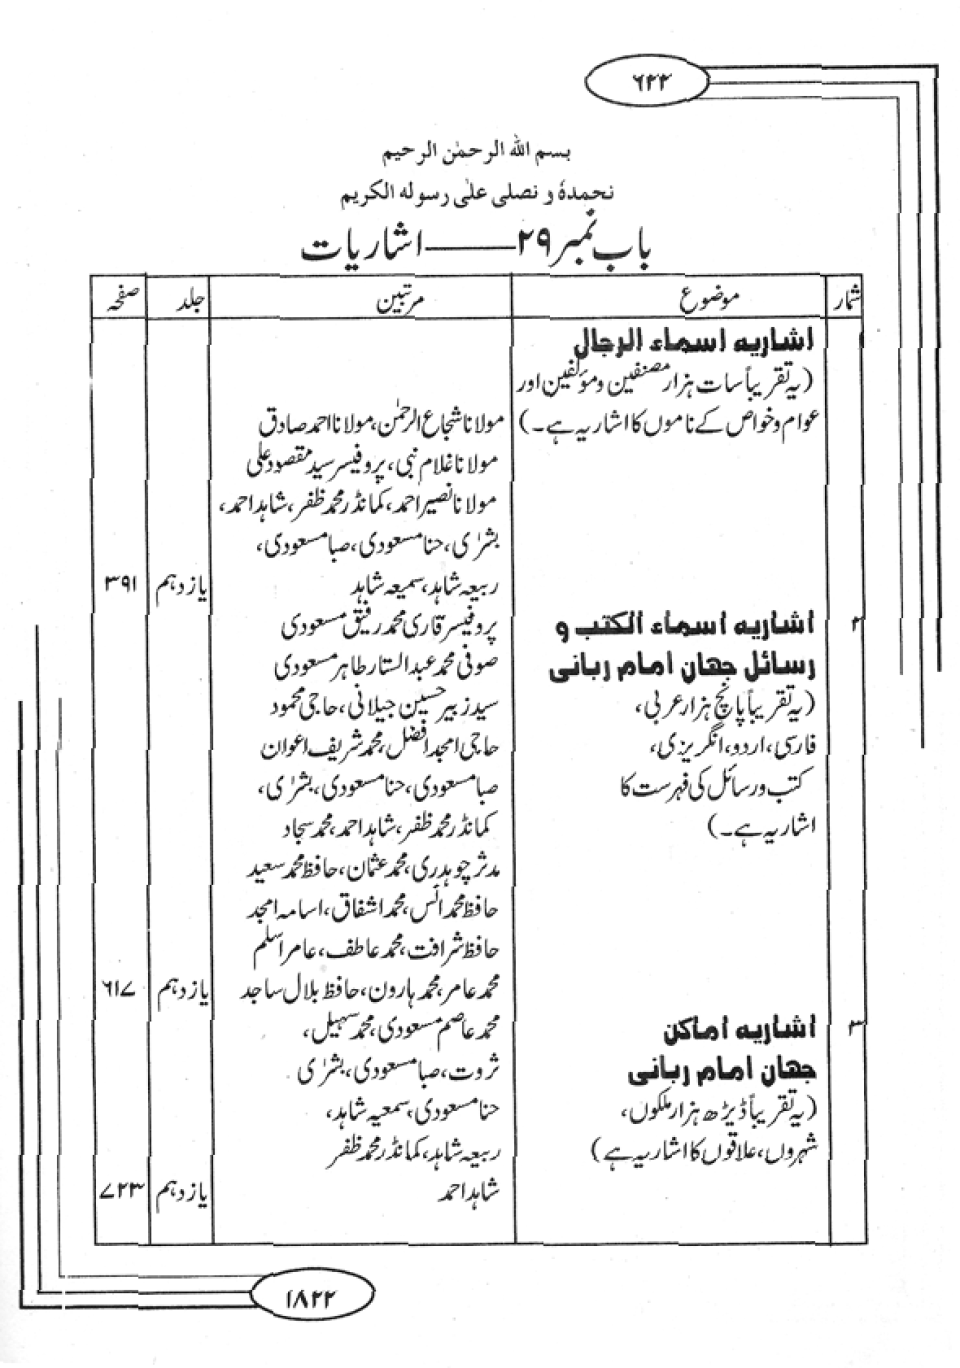 ۶۲۲
بسم الله الرحمٰن الرحیم
نحمدهٗ و نصلی علٰی رسوله الکریم
باب نمبر ۲۹ —— اشاریات
شمار موضوع مرتبین جلد صفحہ
۱ اشاریه اسماء الرجال
(یہ تقریباً سات ہزار مصنفین و مؤلفین اور
عوام و خواص کے ناموں کا اشاریہ ہے۔)
مولانا شجاع الرحمٰن، مولانا احمد صادق
مولانا غلام نبی، پروفیسر سید مقصود علی
مولانا نصیر احمد، کمانڈر محمد ظفر، شاہد احمد،
بشرٰی، حنا مسعودی، صبا مسعودی،
ربیعہ شاہد، سمیعہ شاہد یازدہم ۳۹۱
۲ اشاریه اسماء الکتب و
رسائل جهان امام ربانی
(یہ تقریباً پانچ ہزار عربی،
فارسی، اردو، انگریزی،
کتب و رسائل کی فہرست کا
اشاریہ ہے۔)
پروفیسر قاری محمد رفیق مسعودی
صوفی محمد عبدالستار طاہر مسعودی
سید زبیر حسین جیلانی، حاجی محمود
حاجی امجد افضل، محمد شریف اعوان
صبا مسعودی، حنا مسعودی، بشرٰی،
کمانڈر محمد ظفر، شاہد احمد، محمد سجاد
مدثر چوہدری، محمد عثمان، حافظ محمد سعید
حافظ محمد انس، محمد اشفاق، اسامہ امجد
حافظ شرافت، محمد عاطف، عامر اسلم
محمد عامر، محمد ہارون، حافظ بلال ساجد یازدہم ۶۱۷
۳ اشاریه اماکن
جهان امام ربانی
(یہ تقریباً ڈیڑھ ہزار ملکوں،
شہروں، علاقوں کا اشاریہ ہے)
محمد عاصم مسعودی، محمد سہیل،
ثروت، صبا مسعودی، بشرٰی
حنا مسعودی، سمعیہ شاہد،
ربیعہ شاہد، کمانڈر محمد ظفر
شاہد احمد یازدہم ۷۲۳
۱۸۲۲